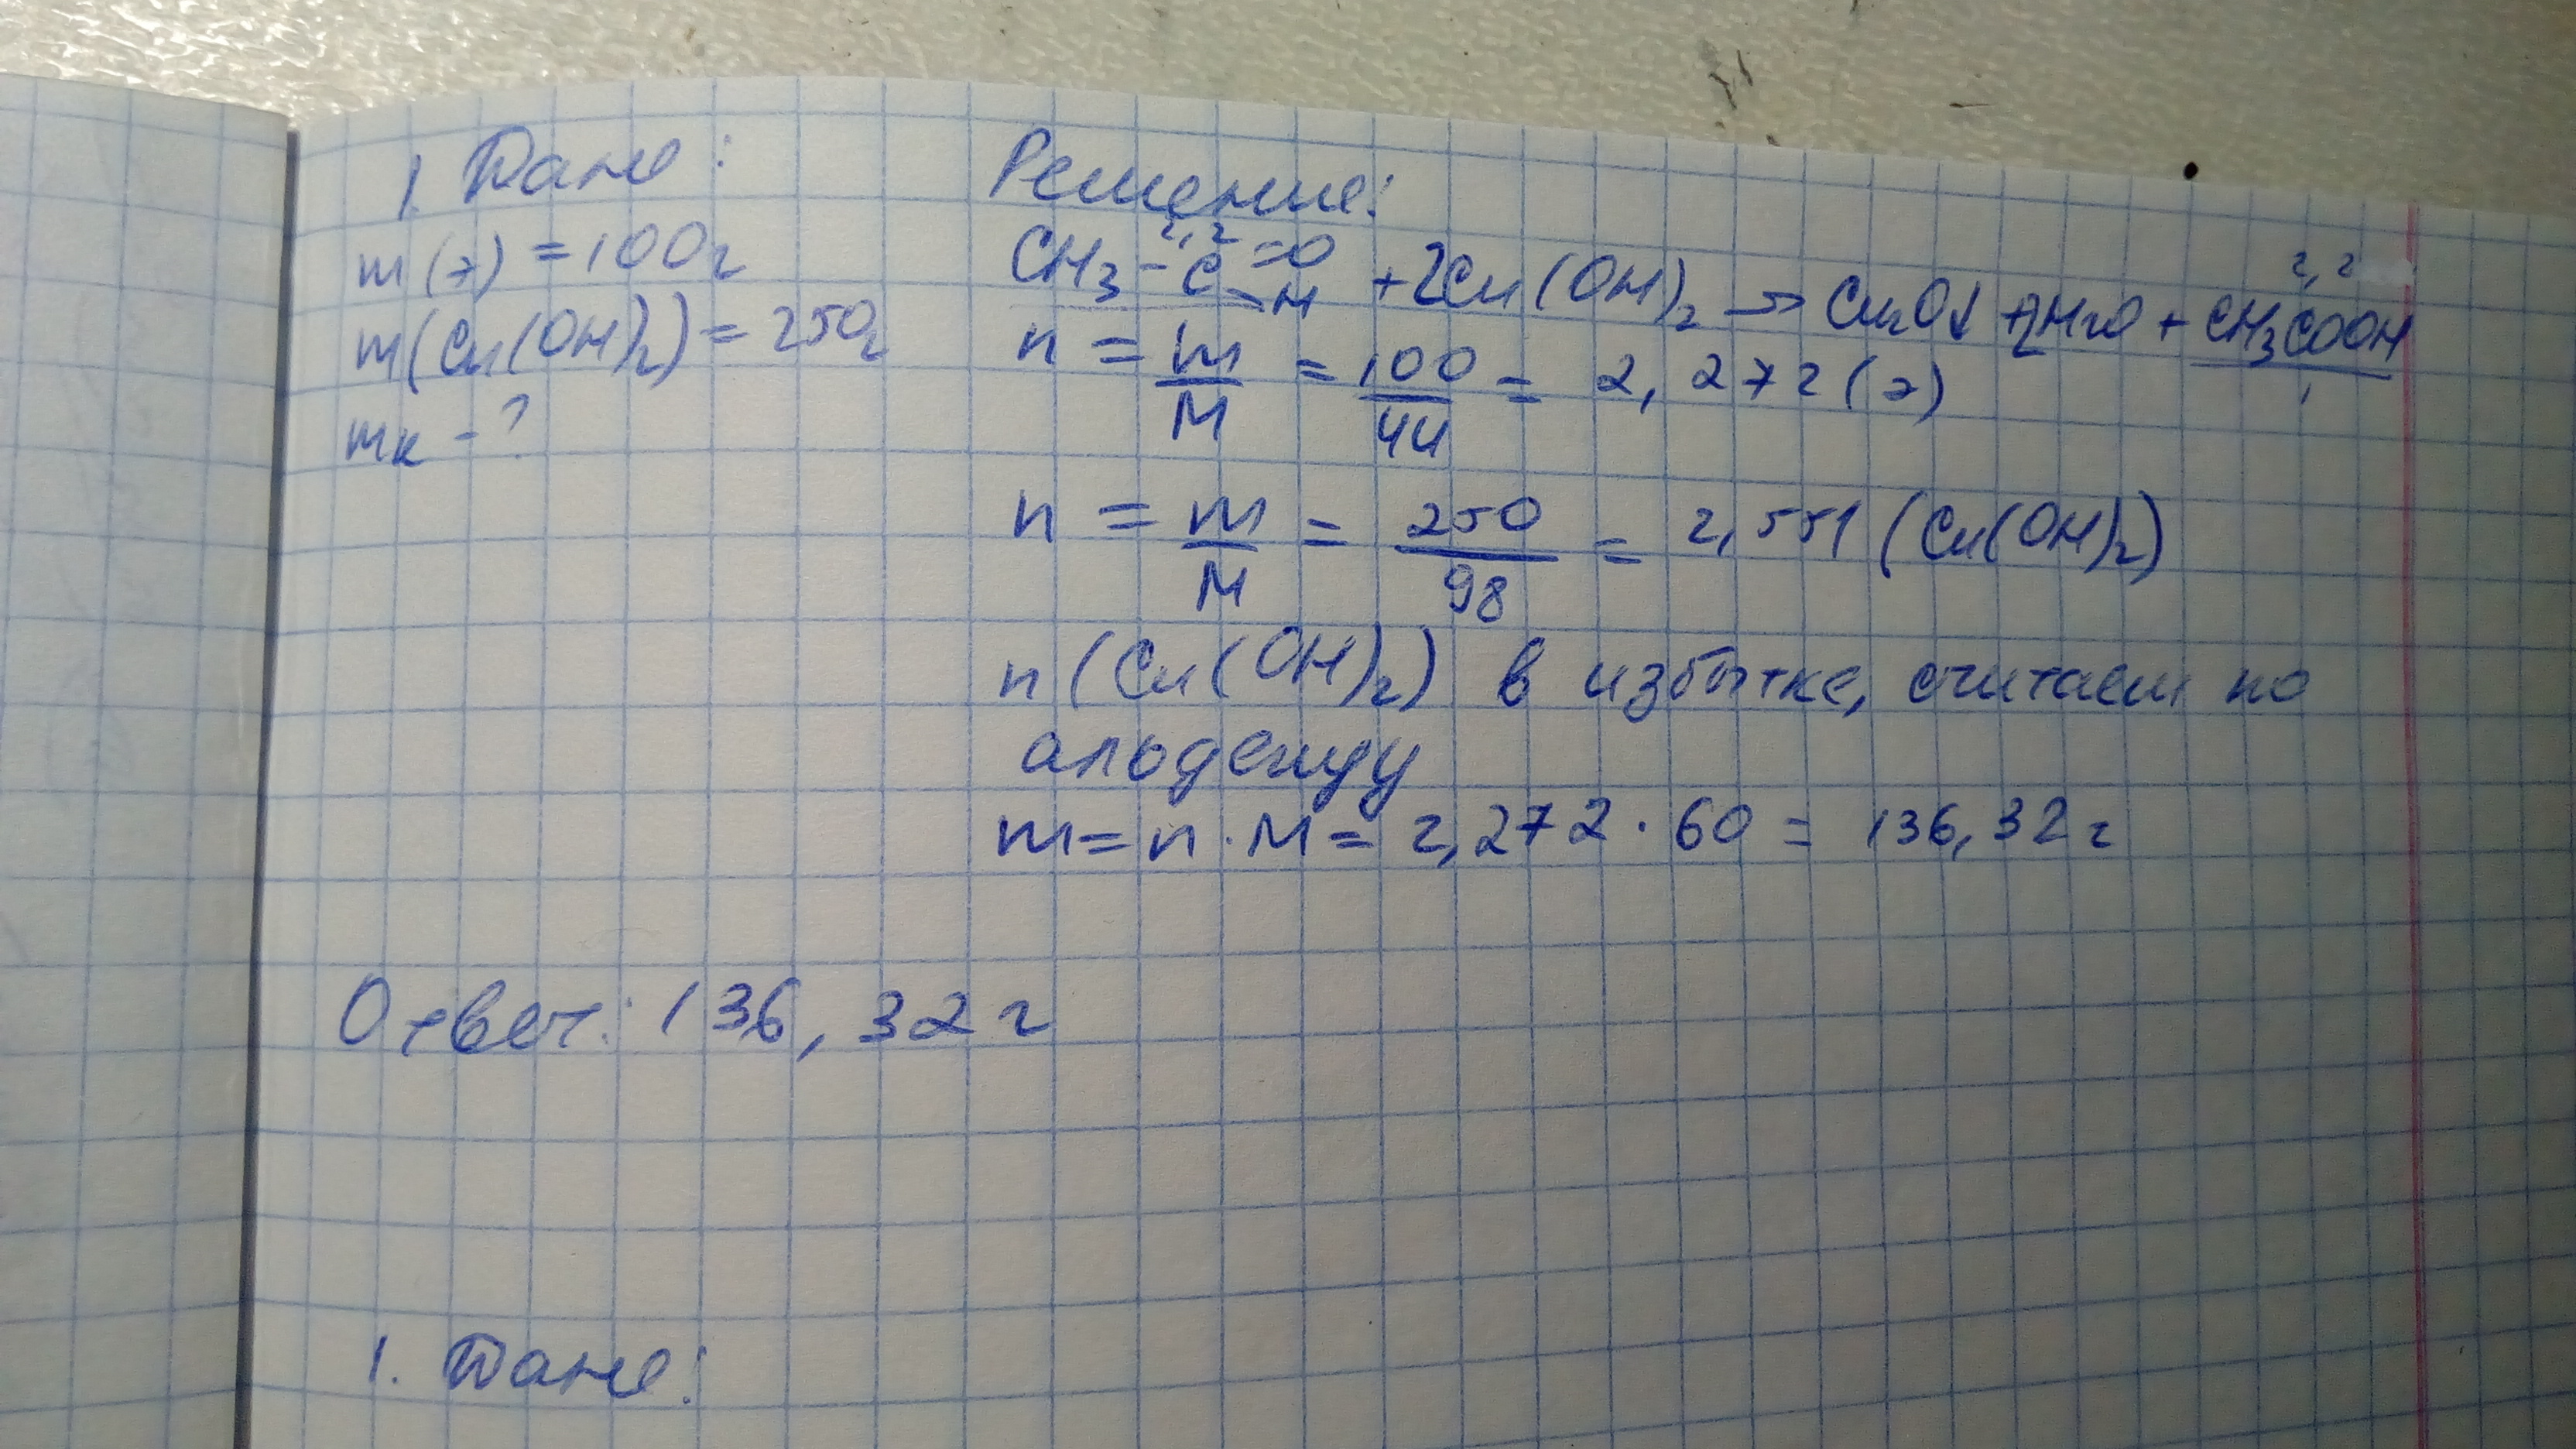 1. Дано:
m(э) = 100г
m(Cu(OH)₂) = 250г
mк - ?
Решение:
2,2 2,2
CH₃ - C =O - H + 2Cu(OH)₂ → Cu₂O↓ + 2H₂O + CH₃COOH
n = m/M = 100/44 = 2,272(э)
n = m/M = 250/98 = 2,551 (Cu(OH)₂)
n (Cu(OH)₂) в избытке, считаем по
альдегиду
m = n · M = 2,272 · 60 = 136,32 г
Ответ: 136,32 г
1. Дано: